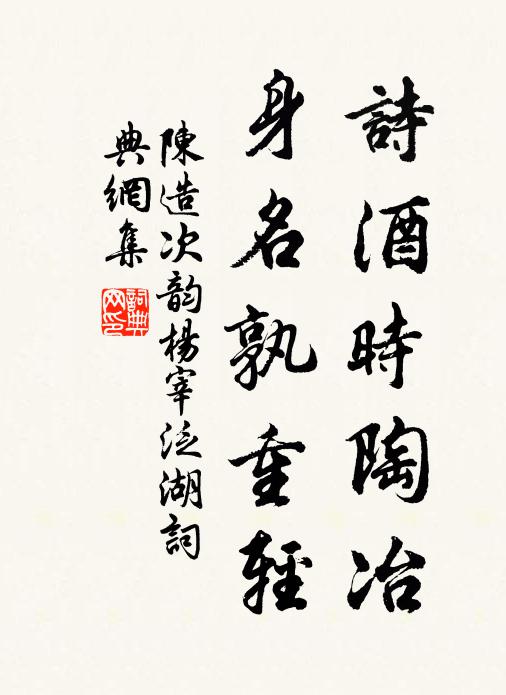 詩酒時陶冶
身名孰重輕
陳造次韵楊宰泛湖詞
典網集
詞典网印